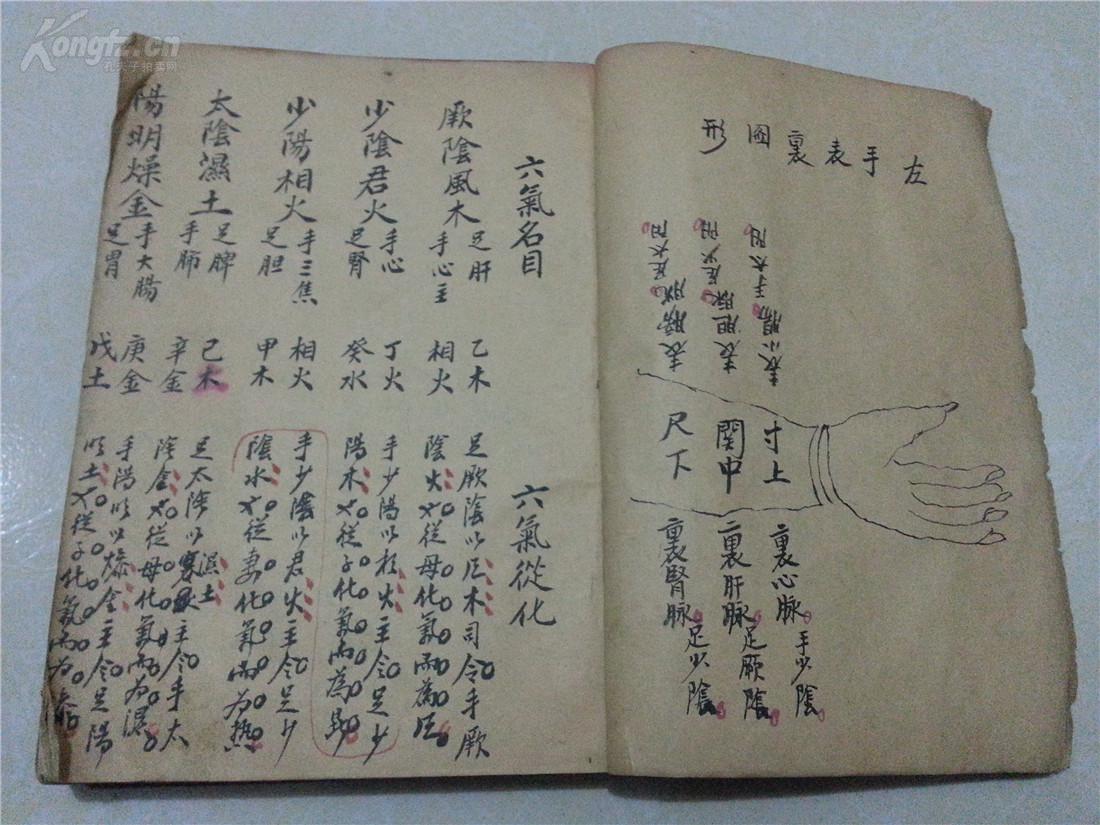 左手表裏圖形
表小腸手太阳
表胆脉足少阳
表膀胱足太阳
寸上
関中
尺下
裏心脉手少陰
裏肝脉足厥陰
裏腎脉足少陰
六氣名目
厥陰風木
足肝 乙木
手心主 相火
少陰君火
手心 丁火
足腎 癸水
少陽相火
手三焦 相火
足胆 甲木
太陰濕土
足脾 己木
手肺 辛金
陽明燥金
手大腸 庚金
足胃 戊土
六氣從化
足厥陰以風木司令手厥
陰火从從母化氣而為風
手少陽以相火主令足少
陽木从從子化氣而為暑
手少陰以君火主令足少
陰水从從妻化氣而为热
足太陰以濕土主令手太
陰金从從母化氣而为濕
手陽明以燥金主令足陽
明土从從子化氣而为燥
Kongfz.cn
孔夫子拍卖网